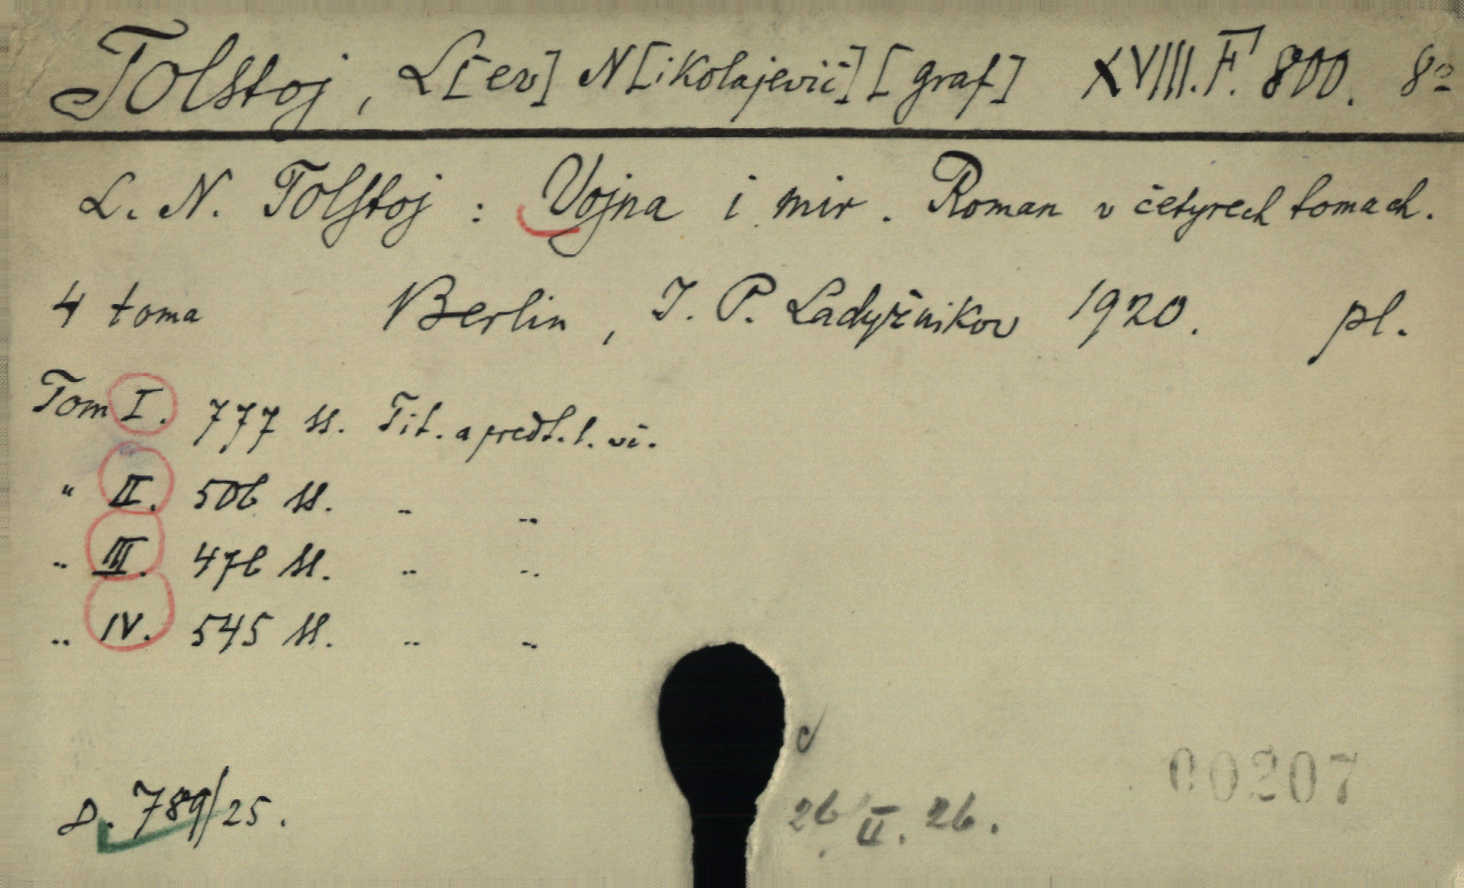 Tolstoj, L[ev] N[ikolajevič] [graf] XVIII.F. 800. 8º
L. N. Tolstoj : Vojna i mir. Roman v četyrech tomach.
4 toma Berlin, I. P. Ladyžnikov 1920. pl.
Tom I. 777 ss. Tit. a předt. l. vč.
" II. 506 ss. " "
" III. 476 ss. " "
" IV. 545 ss. " "
D. 789/25.
26/II. 26.
00207